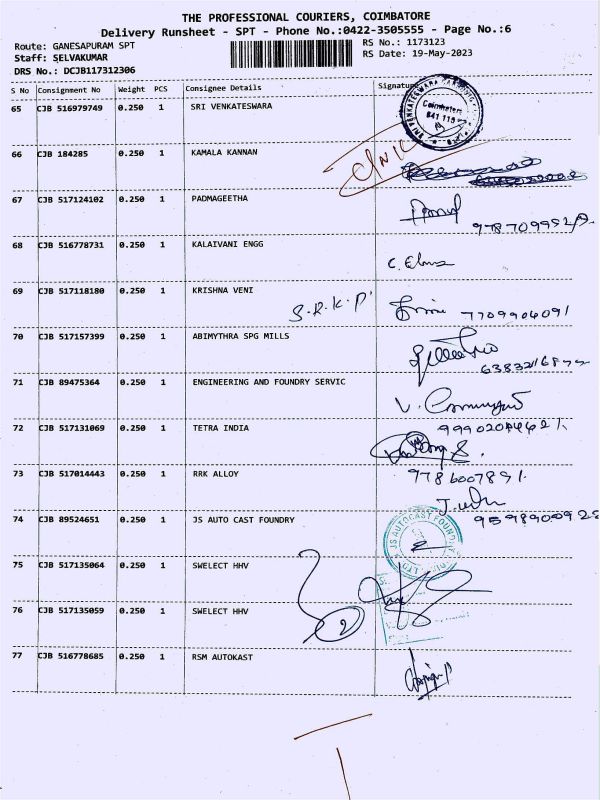 THE PROFESSIONAL COURIERS, COIMBATORE
Delivery Runsheet - SPT - Phone No.:0422-3505555 - Page No.:6
Route: GANESAPURAM SPT
RS No.: 1173123
Staff: SELVAKUMAR
RS Date: 19-May-2023
DRS No.: DCJB117312306
S No Consignment No Weight PCS Consignee Details Signature
65 CJB 516979749 0.250 1 SRI VENKATESWARA
Coimbatore
641 110
66 CJB 184285 0.250 1 KAMALA KANNAN
67 CJB 517124102 0.250 1 PADMAGEETHA
68 CJB 516778731 0.250 1 KALAIVANI ENGG
69 CJB 517118180 0.250 1 KRISHNA VENI
S.R.K.P
7709904091
70 CJB 517157399 0.250 1 ABIMYTHRA SPG MILLS
71 CJB 89475364 0.250 1 ENGINEERING AND FOUNDRY SERVIC
72 CJB 517131069 0.250 1 TETRA INDIA
73 CJB 517014443 0.250 1 RRK ALLOY
9786007891
74 CJB 89524651 0.250 1 JS AUTO CAST FOUNDRY
JS AUTOCAST FOUNDRY
75 CJB 517135064 0.250 1 SWELECT HHV
76 CJB 517135059 0.250 1 SWELECT HHV
2
77 CJB 516778685 0.250 1 RSM AUTOKAST